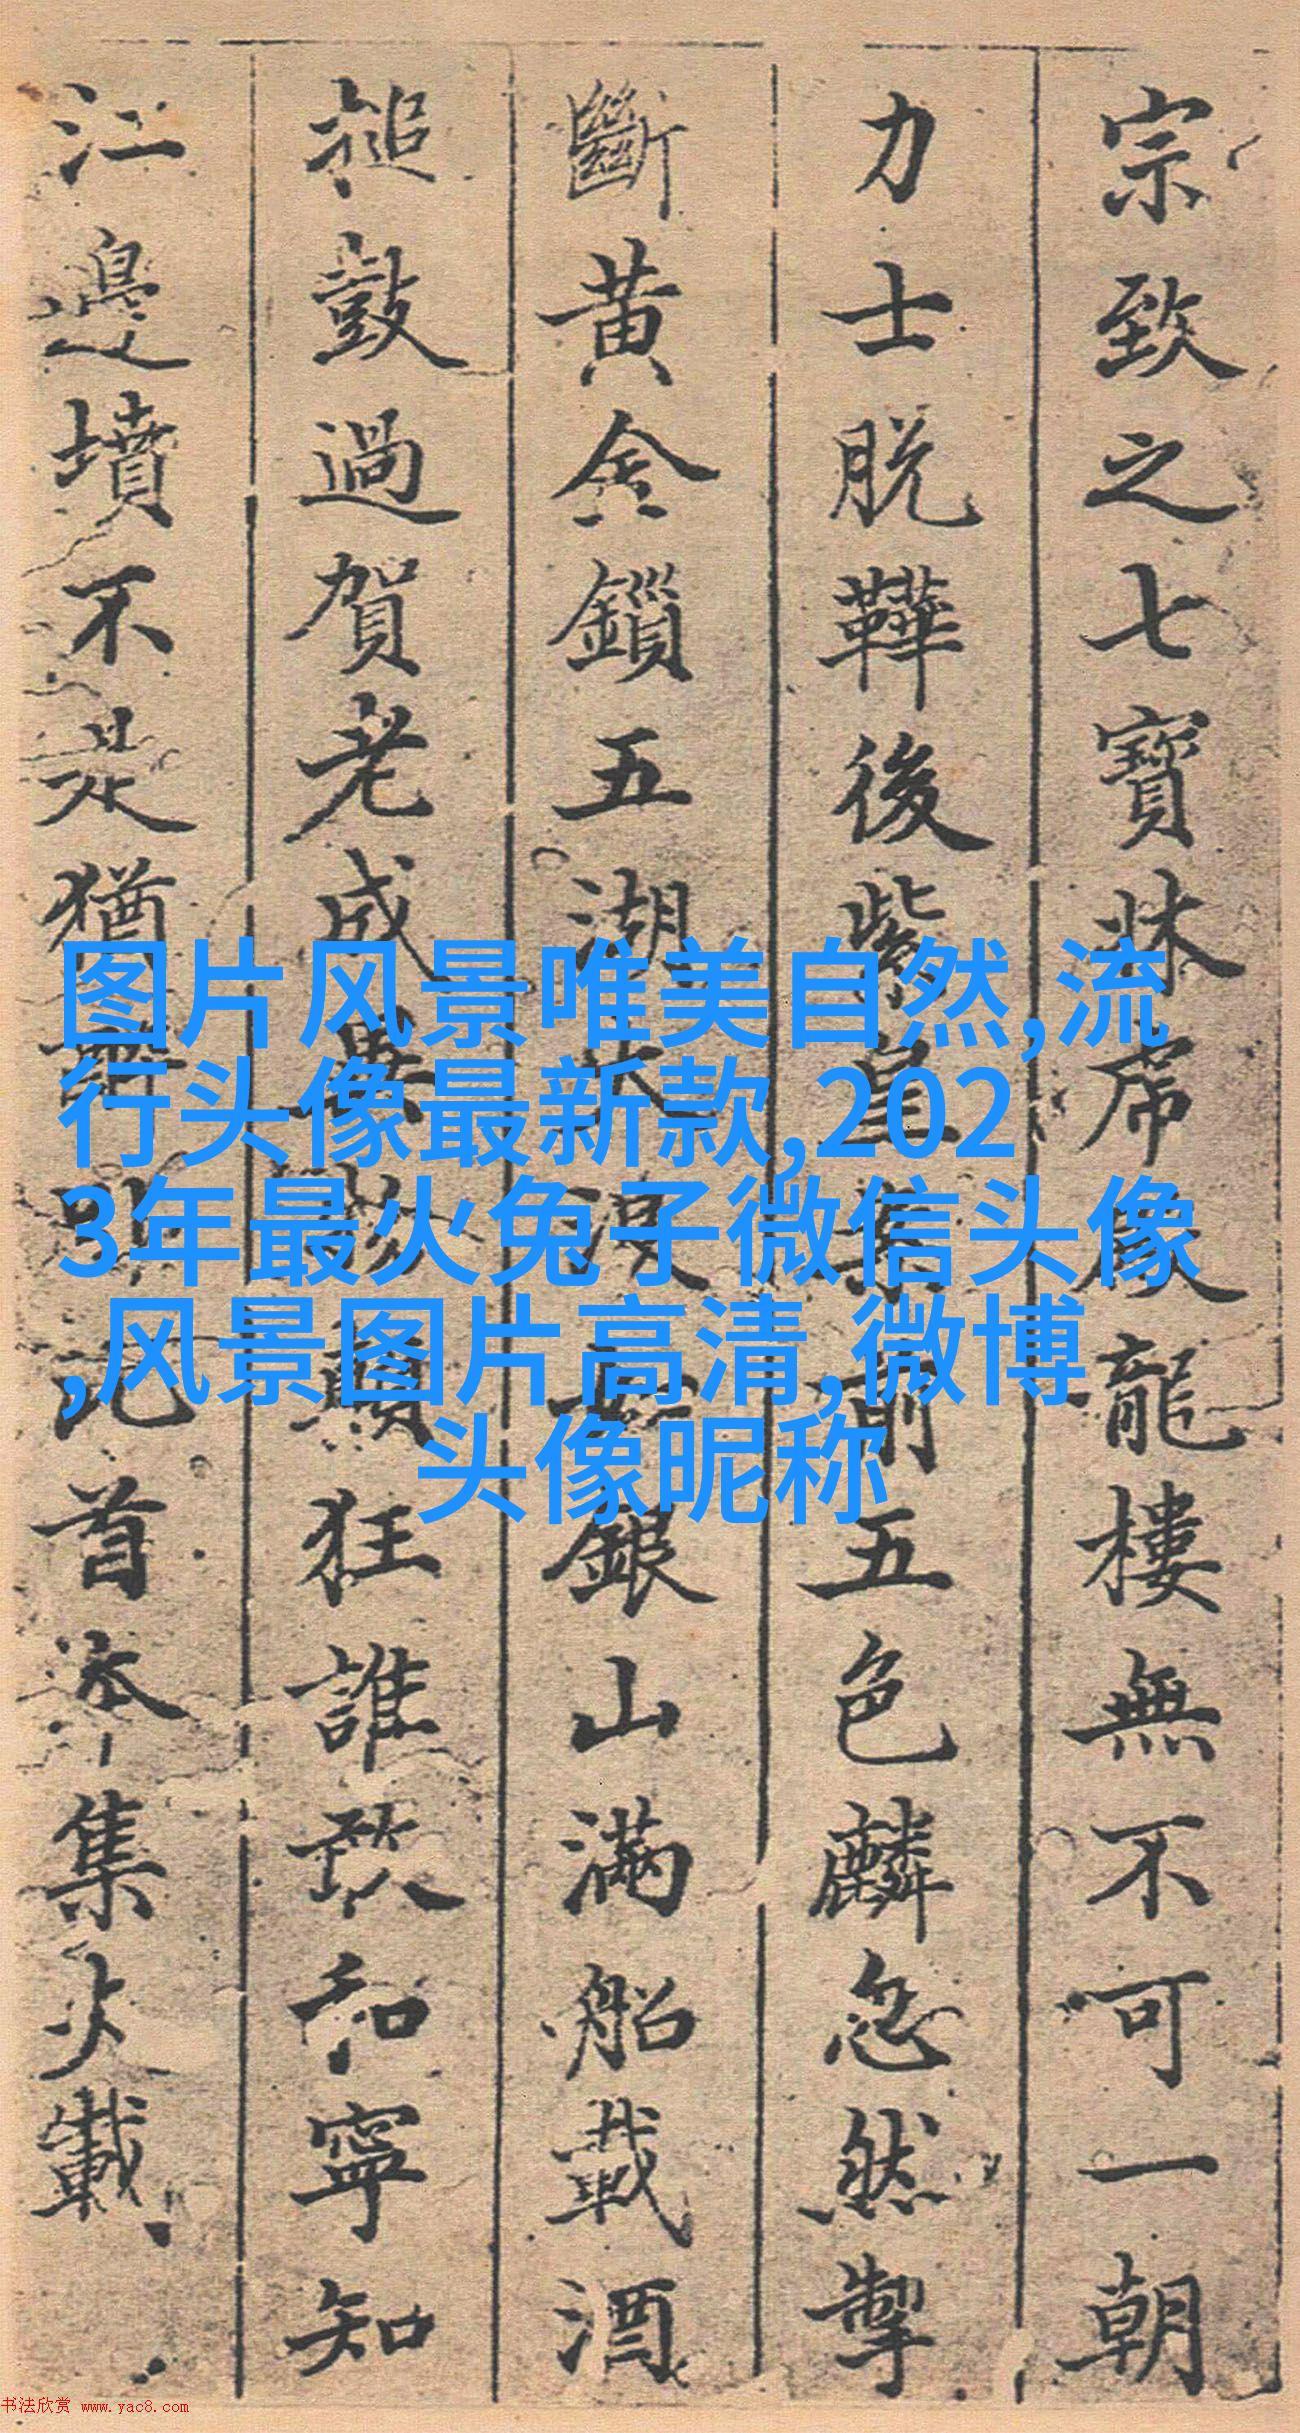 宗致之七寶牀席龍樓無不可一朝
力士脱鞾後紫皇案前五色麟忽然掣
斷黃金鎖五湖大浪如銀山滿船載酒
槌鼓過賀老成異物顛狂誰敢和寧知
江邊墳不是猶此首本集載
图片风景唯美自然,流
行头像最新款,202
3年最火兔子微信头像
,风景图片高清,微博
头像昵称
书法欣赏 www.yac8.com